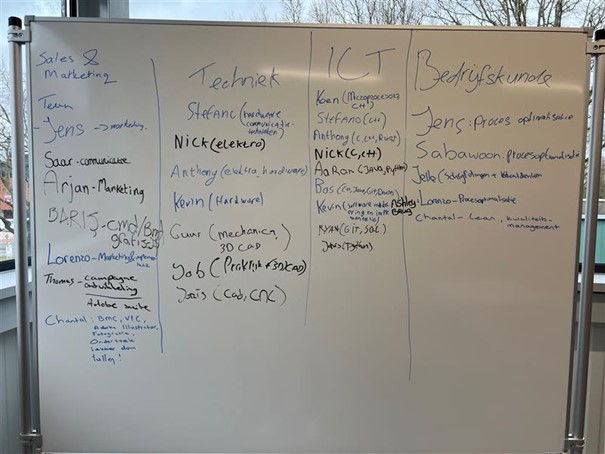 Sales &
Marketing
Team
- Jens -> marketing.
Saar - comunicatie
Arjan - Marketing
BARIŞ - cmd/
grafisch
Lorenzo - Marketing&
Thomas - campagne
ontwikkeling
Adobe suite
Chantal: BMC, VPC,
Adobe Illustrator,
Fotografie,
Onderzoek
lekker dom
lullen!
Techniek
Stefano (hardware
communicatie-
technieken)
Nick (elektro)
Anthony (elektro, hardware)
Kevin (Hardware)
Guus (mechanica,
3D CAD)
Job (Praktijk + 3D CAD)
Joris (Cad, CNC)
ICT
Koen (Microprocessors
C++)
Stefano (C++)
Anthony (C, C++, Rust)
Nick (C, C++)
AaRan (JAVA, Python)
Bas
Kevin (software
Ashley:
RYAN (GIT, SQL)
Jens (Python)
Bedrijfskunde
Jens: Proces optimalisatie
Sabawoon: procesoptimalisatie
Jelle (
Lorenzo - Procesoptimalisatie
Chantal - Lean, kwaliteits-
management